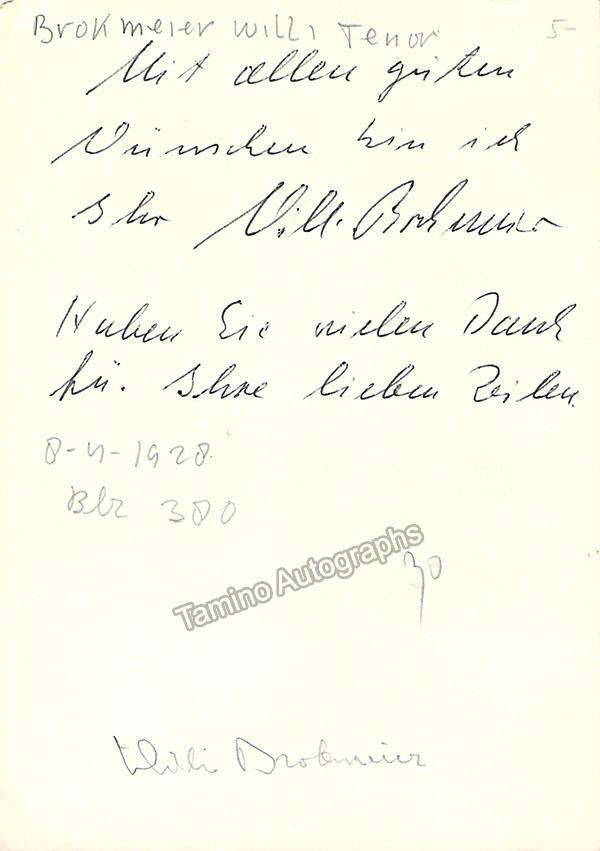 Brokmeier Willi Tenor 5-
Mit allen guten
Wünschen bin ich
Ihr Willi Brokmeier
Haben Sie vielen Dank
für Ihre lieben Zeilen.
8-4-1928.
380
Tamino Autographs
30
Willi Brokmeier